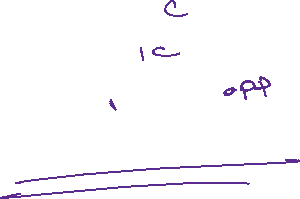 C
1C
opp